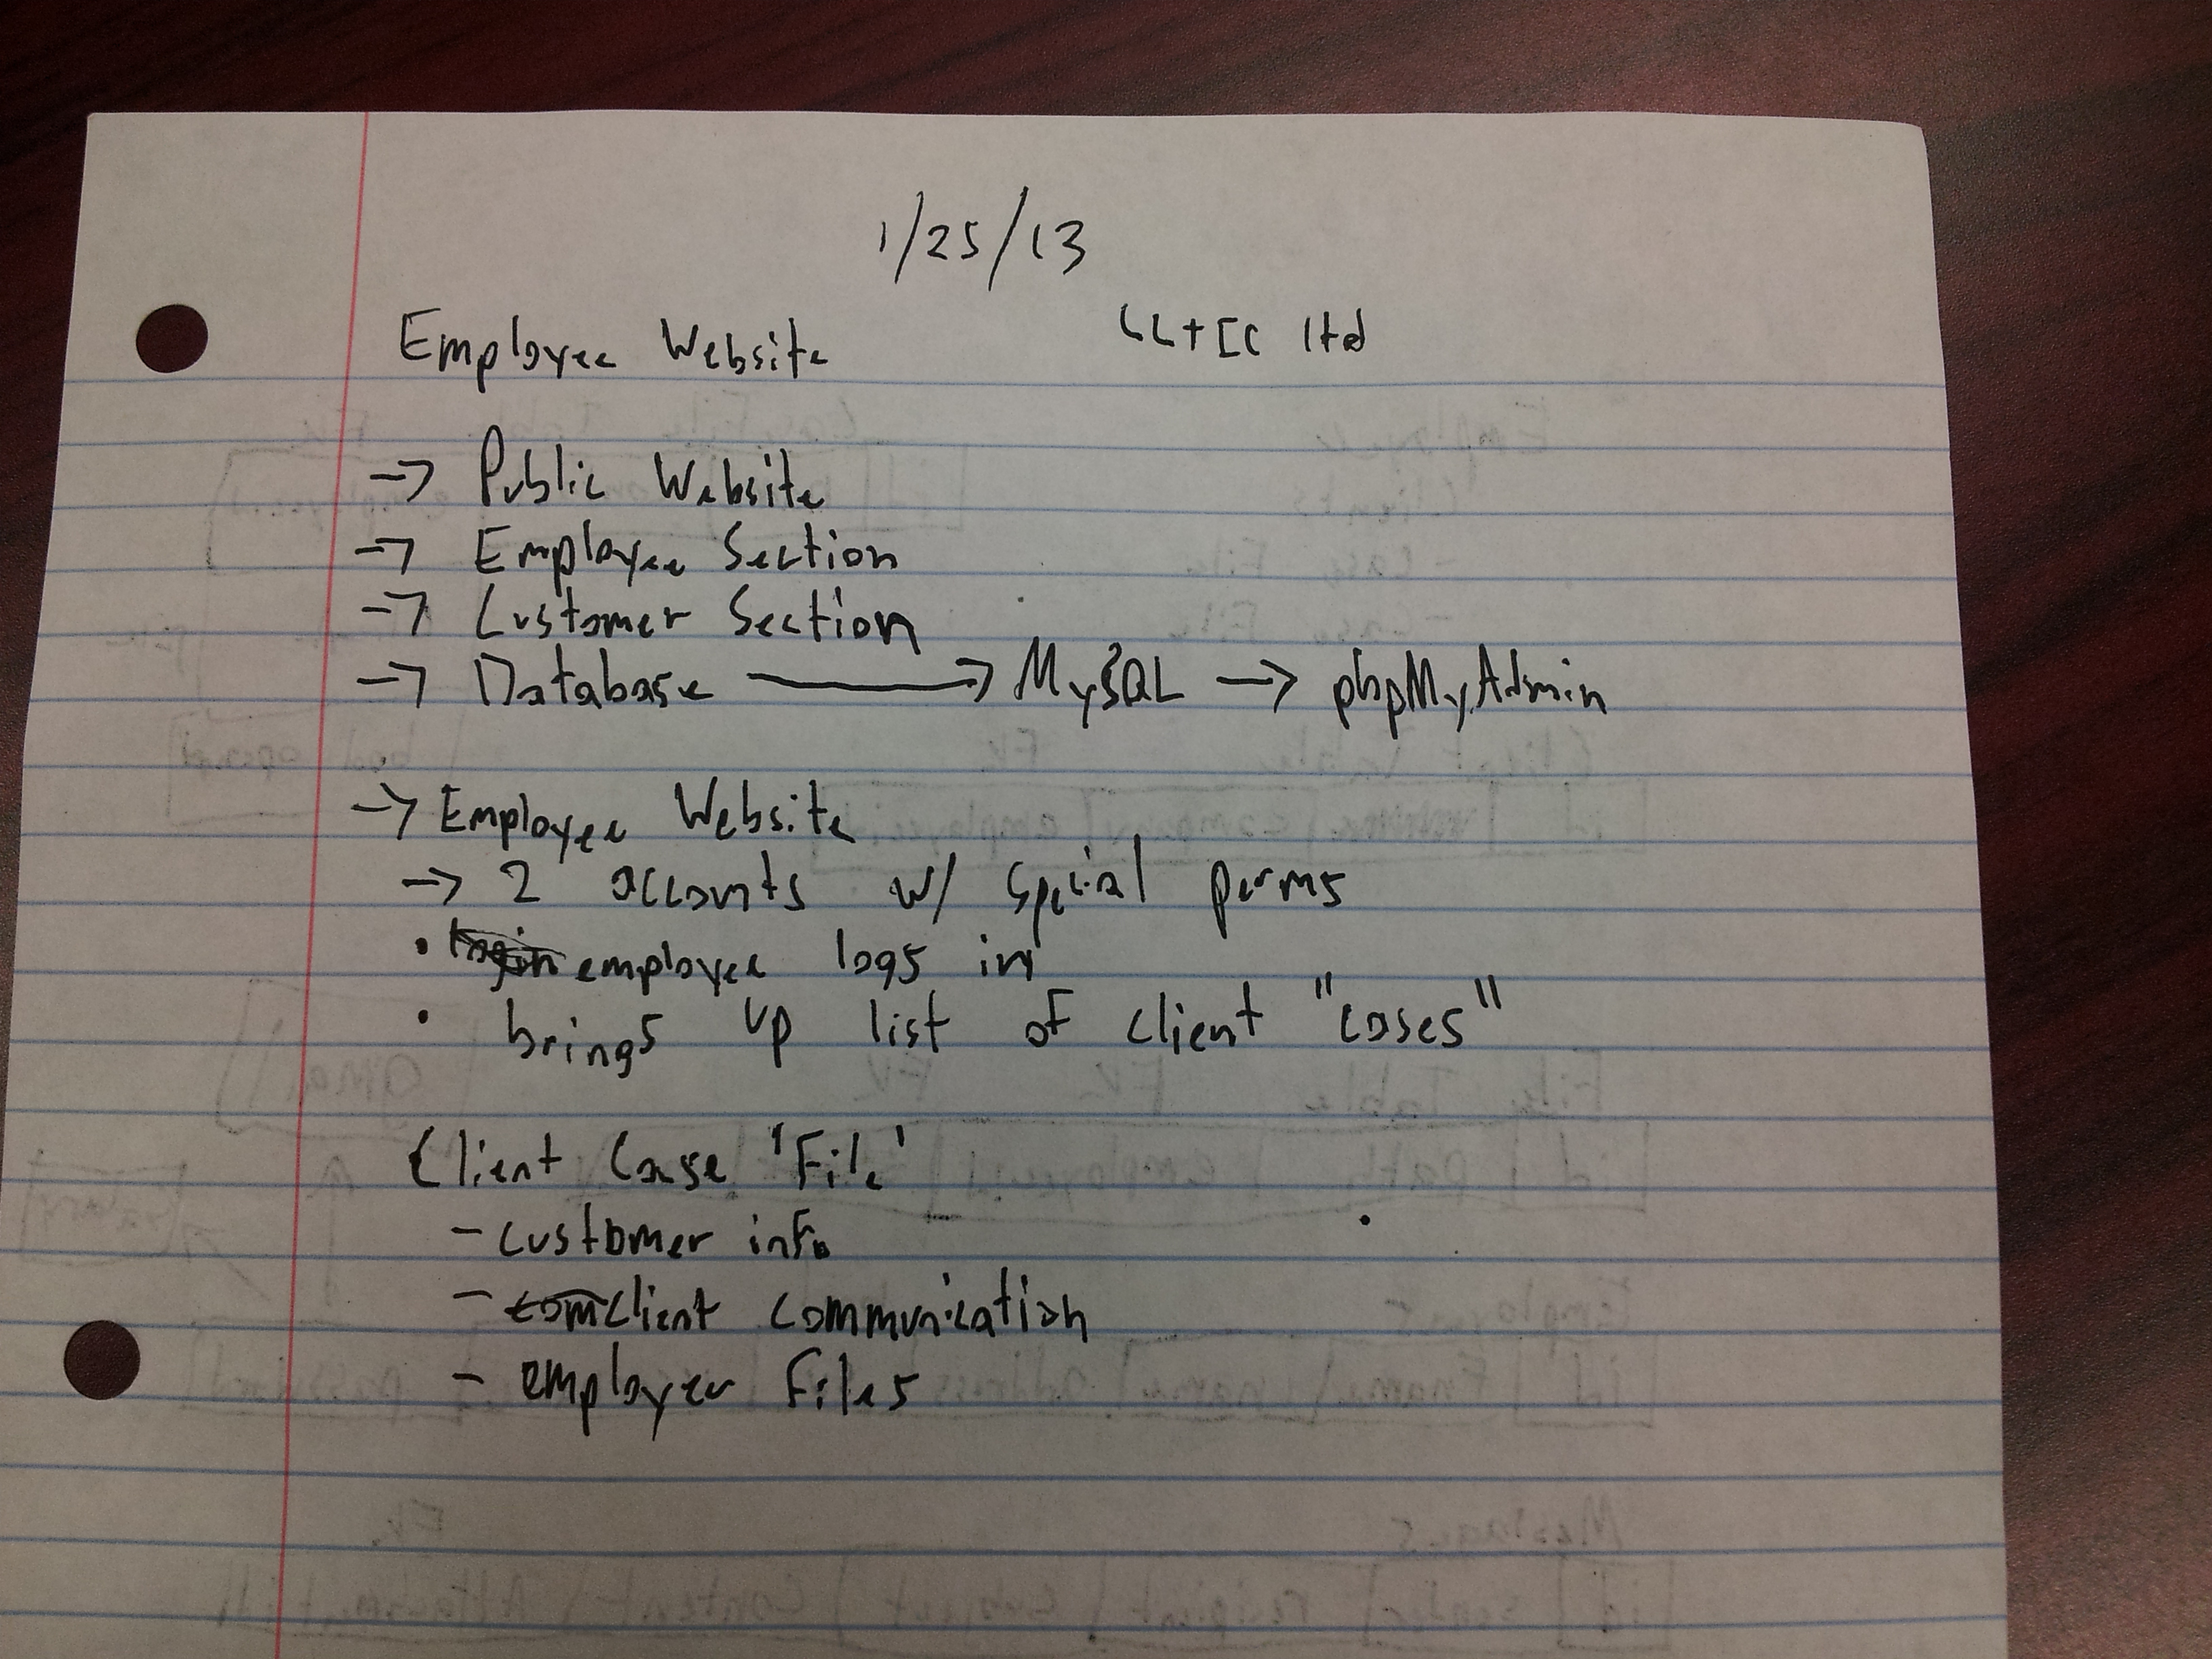 1/25/13
Employee Website ltd
→ Public Website
→ Employee Section
→ Customer Section
→ Database → MySQL → phpMyAdmin
→ Employee Website
→ 2 accounts w/ special perms
• login employee logs in
• brings up list of client "cases"
Client Case 'File'
- customer info
- com client communication
- employee files